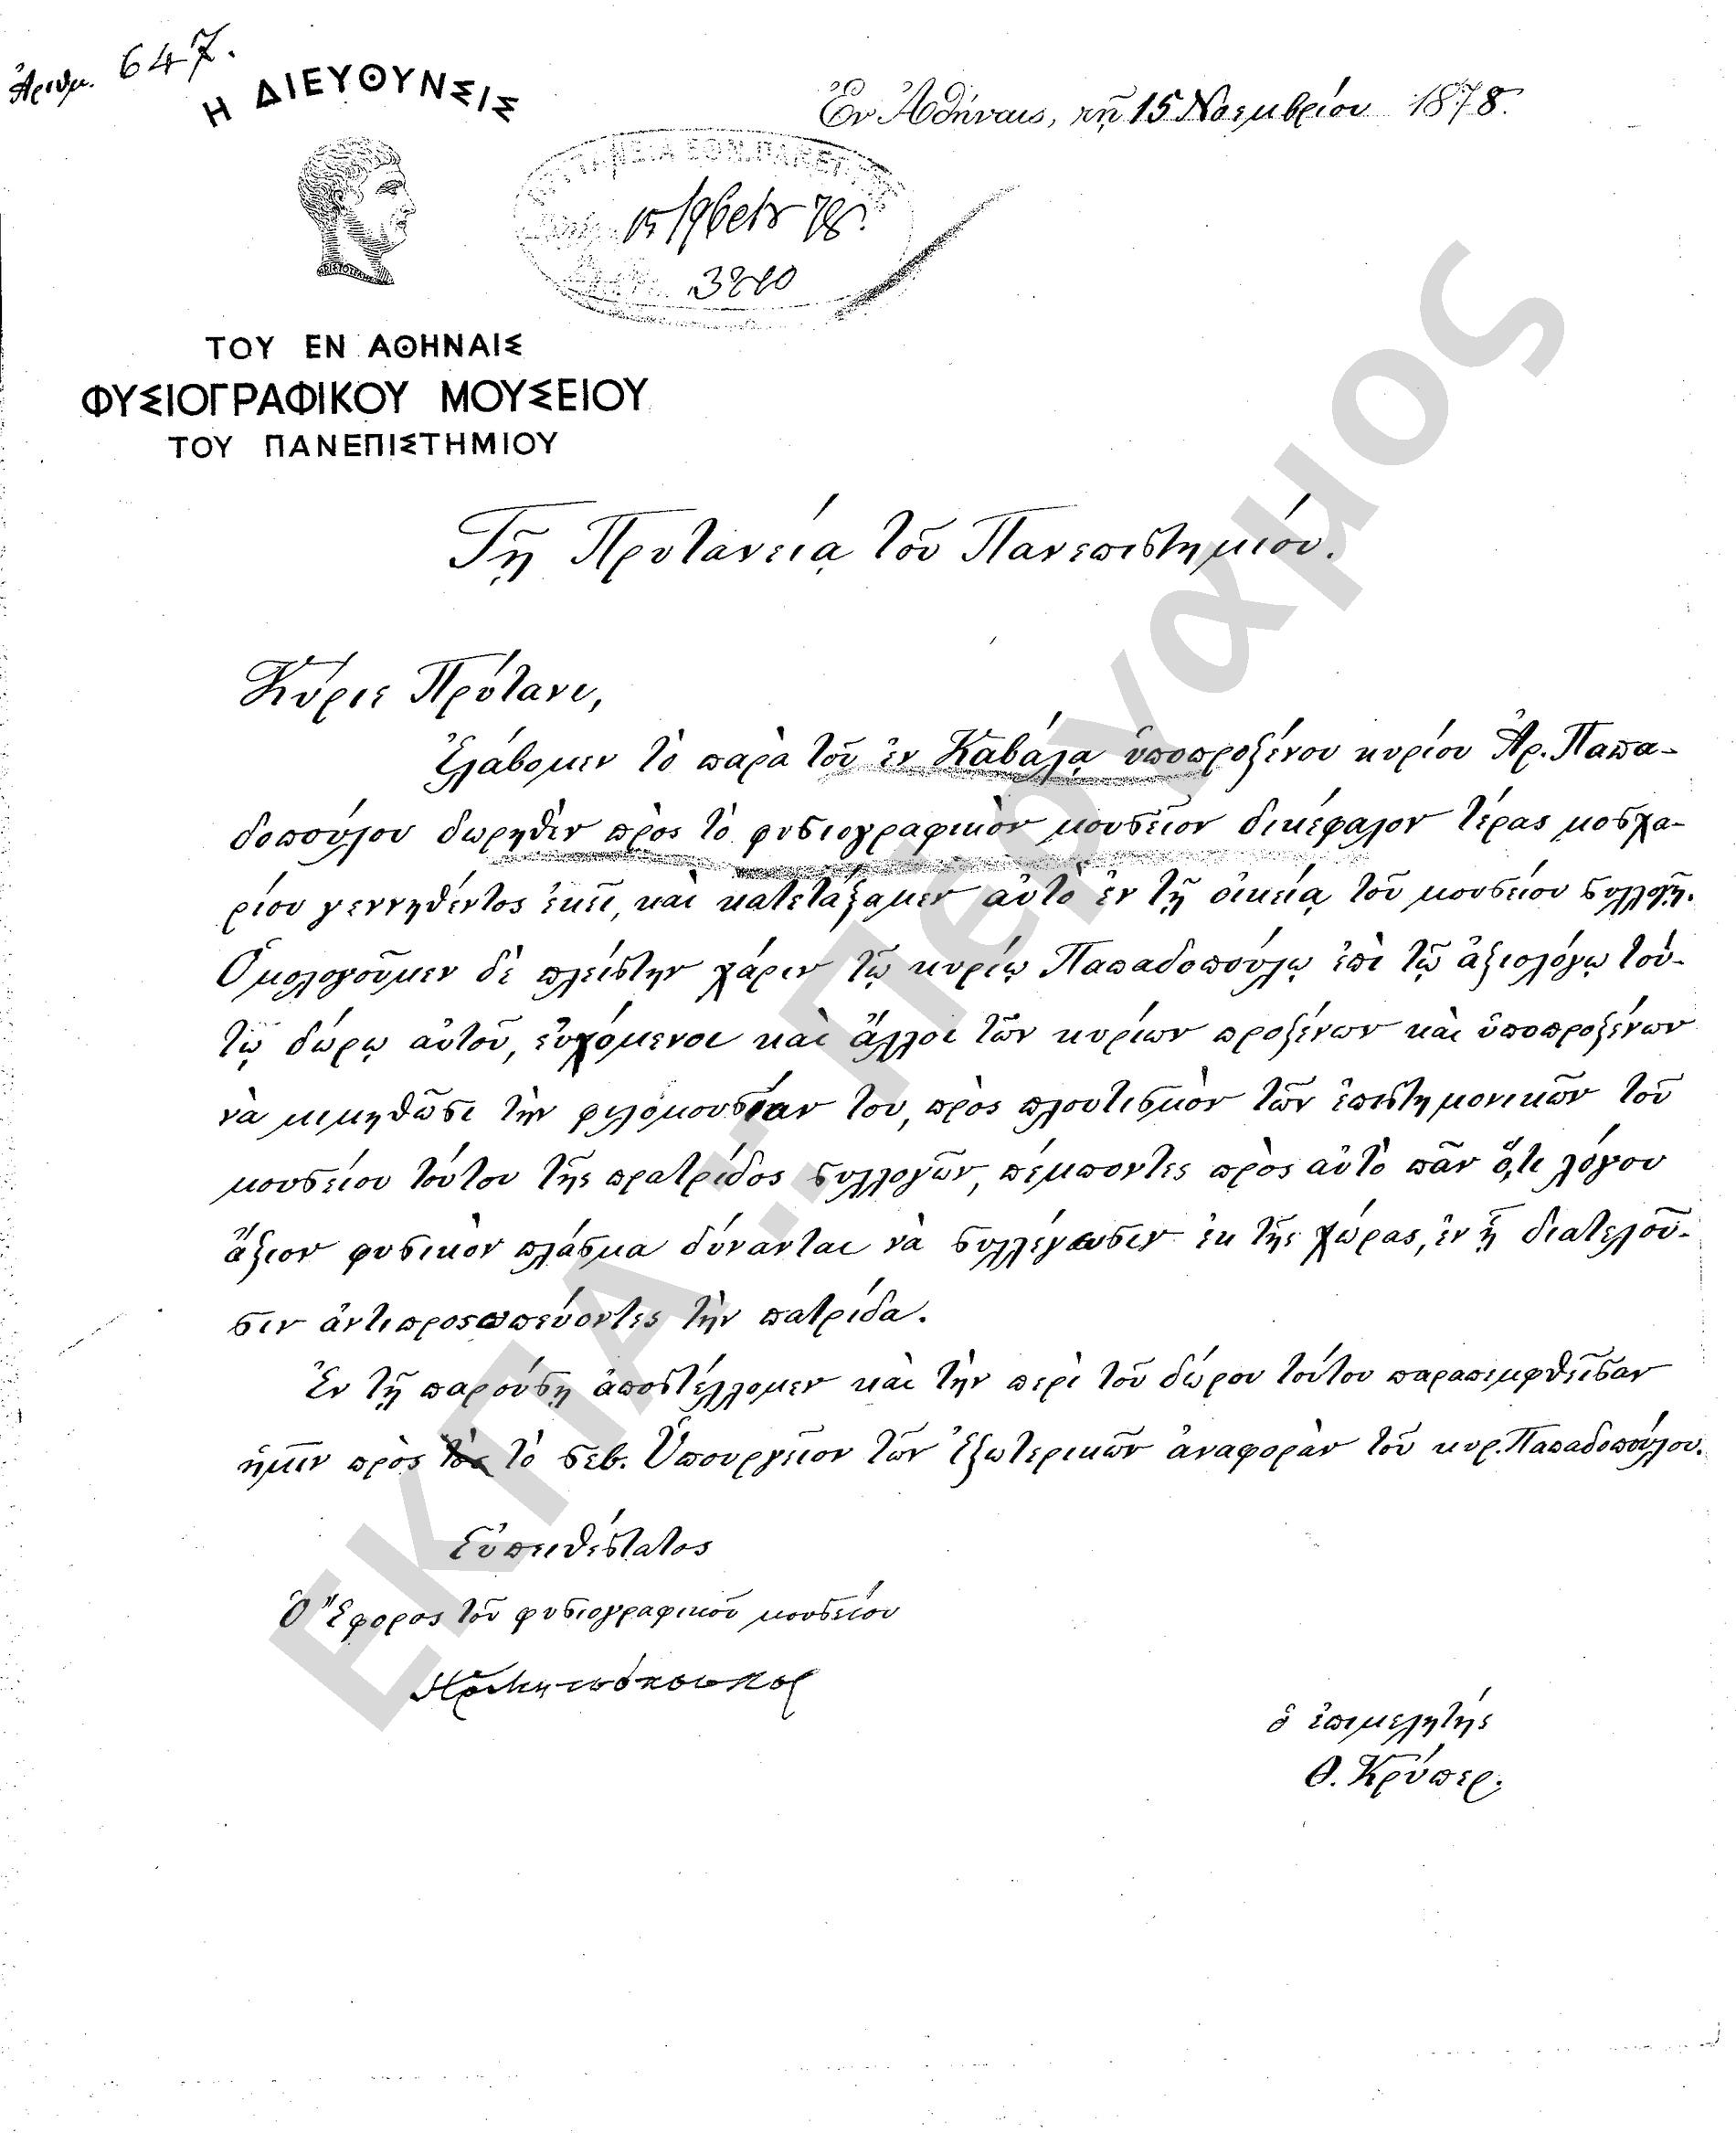 Ἀριθμ. 647.
Η ΔΙΕΥΘΥΝΣΙΣ
Ἐν Ἀθήναις, τῇ 15 Νοεμβρίου 1878.
ΠΡΥΤΑΝΕΙΑ ΕΘΝ. ΠΑΝΕΠΙΣΤ
15/9βρίου 78.
ΑΡΙΣΤΟΤΕΛΗΣ
ΤΟΥ ΕΝ ΑΘΗΝΑΙΣ
ΦΥΣΙΟΓΡΑΦΙΚΟΥ ΜΟΥΣΕΙΟΥ
ΤΟΥ ΠΑΝΕΠΙΣΤΗΜΙΟΥ
Τῇ Πρυτανείᾳ τοῦ Πανεπιστημίου.
Κύριε Πρύτανι,
Ἐλάβομεν τὸ παρὰ τοῦ ἐν Καβάλᾳ ὑποπροξένου κυρίου Ἀρ. Παπα-
δοπούλου δωρηθὲν πρὸς τὸ φυσιογραφικὸν μουσεῖον δικέφαλον τέρας μοσχα-
ρίου γεννηθέντος ἐκεῖ, καὶ κατετάξαμεν αὐτὸ ἐν τῇ οἰκείᾳ τοῦ μουσείου συλλογῇ.
Ὁμολογοῦμεν δὲ πλείστην χάριν τῷ κυρίῳ Παπαδοπούλῳ ἐπὶ τῷ ἀξιολόγῳ τού-
τῳ δώρῳ αὐτοῦ, εὐχόμενοι καὶ ἄλλοι τῶν κυρίων προξένων καὶ ὑποπροξένων
νὰ μιμηθῶσι τὴν φιλομουσίαν του, πρὸς πλουτισμὸν τῶν ἐπιστημονικῶν τοῦ
μουσείου τούτου τῆς πρατρίδος συλλογῶν, πέμποντες πρὸς αὐτὸ πᾶν ὅ,τι λόγου
ἄξιον φυσικὸν πλάσμα δύνανται νὰ συλλέγωσιν ἐκ τῆς χώρας, ἐν ᾗ διατελοῦ-
σιν ἀντιπροσωπεύοντες τὴν πατρίδα.
Ἐν τῇ παρούσῃ ἀποστέλλομεν καὶ τὴν περὶ τοῦ δώρου τούτου παραπεμφθεῖσαν
ἡμῖν πρὸς τὸ σεβ. Ὑπουργεῖον τῶν Ἐξωτερικῶν ἀναφορὰν τοῦ κυρ. Παπαδοπούλου.
Εὐπειθέστατος
Ὁ Ἔφορος τοῦ φυσιογραφικοῦ μουσείου
ὁ ἐπιμελητής
Θ. Κρύπερ.
ΕΚΠΑ.:.Πέργαμος